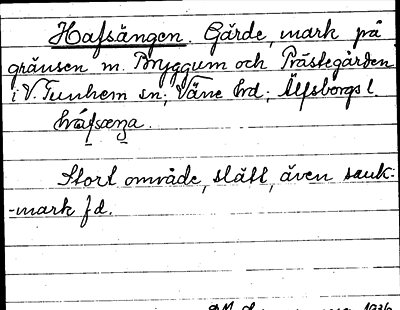 Hafsängen. Gärde, mark på
gränsen m. Bryggum och Prästegården
i V. Tunhem sn; Väne hd; Älfsborgs l.
Stort område, slätt, även sank-
-mark f d.